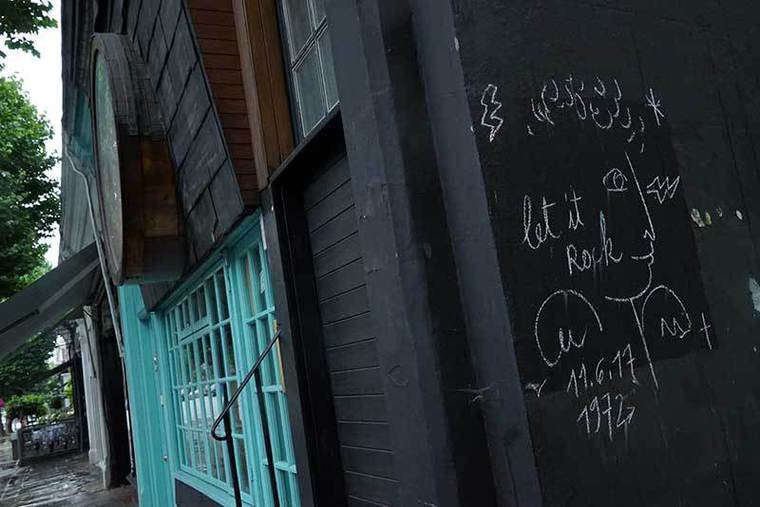 let it
Rock
11.6.17
1972